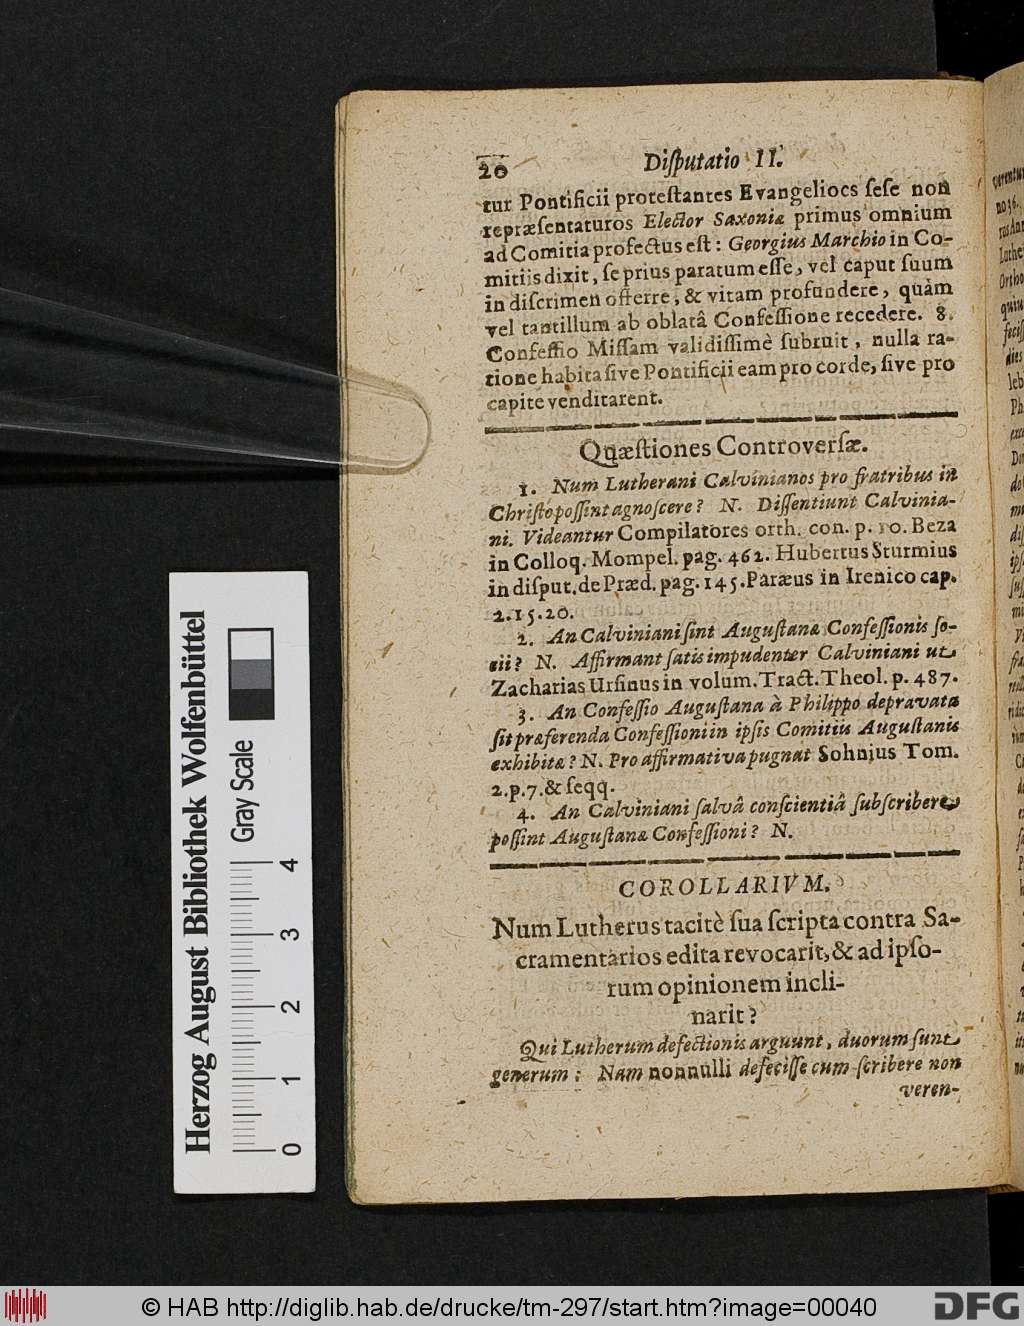 20 Diſputatio II.
tur Pontificii proteſtantes Evangelicos ſeſe non
repræſentaturos Elector Saxoniæ primus omnium
ad Comitia profectus eſt: Georgius Marchio in Co-
mitiis dixit, ſe prius paratum eſſe, vel caput ſuum
in diſcrimen offerre, & vitam profundere, quàm
vel tantillum ab oblatâ Confeſſione recedere. 8.
Confeſſio Miſſam validiſſimè ſubruit, nulla ra-
tione habita ſive Pontificii eam pro corde, ſive pro
capite venditarent.
Quæſtiones Controverſæ.
1. Num Lutherani Calvinianos pro fratribus in
Chriſto poſſint agnoſcere? N. Diſſentiunt Calvinia-
ni. Videantur Compilatores orth. con. p. 10. Beza
in Colloq. Mompel. pag. 462. Hubertus Sturmius
in diſput. de Præd. pag. 145. Paræus in Irenico cap.
2.15.20.
2. An Calviniani ſint Auguſtanæ Confeſſionis ſo-
cii? N. Affirmant ſatis impudenter Calviniani ut
Zacharias Urſinus in volum. Tract. Theol. p. 487.
3. An Confeſſio Auguſtana à Philippo depravata
ſit præferenda Confeſſioni in ipſis Comitiis Auguſtanis
exhibitæ? N. Pro affirmativa pugnat Sohnius Tom.
2. p. 7. & ſeqq.
4. An Calviniani ſalvâ conſcientiâ ſubſcribere
poſſint Auguſtanæ Confeſſioni? N.
COROLLARIVM.
Num Lutherus tacitè ſua ſcripta contra Sa-
cramentarios edita revocarit, & ad ipſo-
rum opinionem incli-
narit?
Qui Lutherum defectionis arguunt, duorum ſunt
generum: Nam nonnulli defeciſſe cum ſcribere non
veren-
Herzog August Bibliothek Wolfenbüttel
Gray Scale
0 1 2 3 4
© HAB http://diglib.hab.de/drucke/tm-297/start.htm?image=00040
DFG